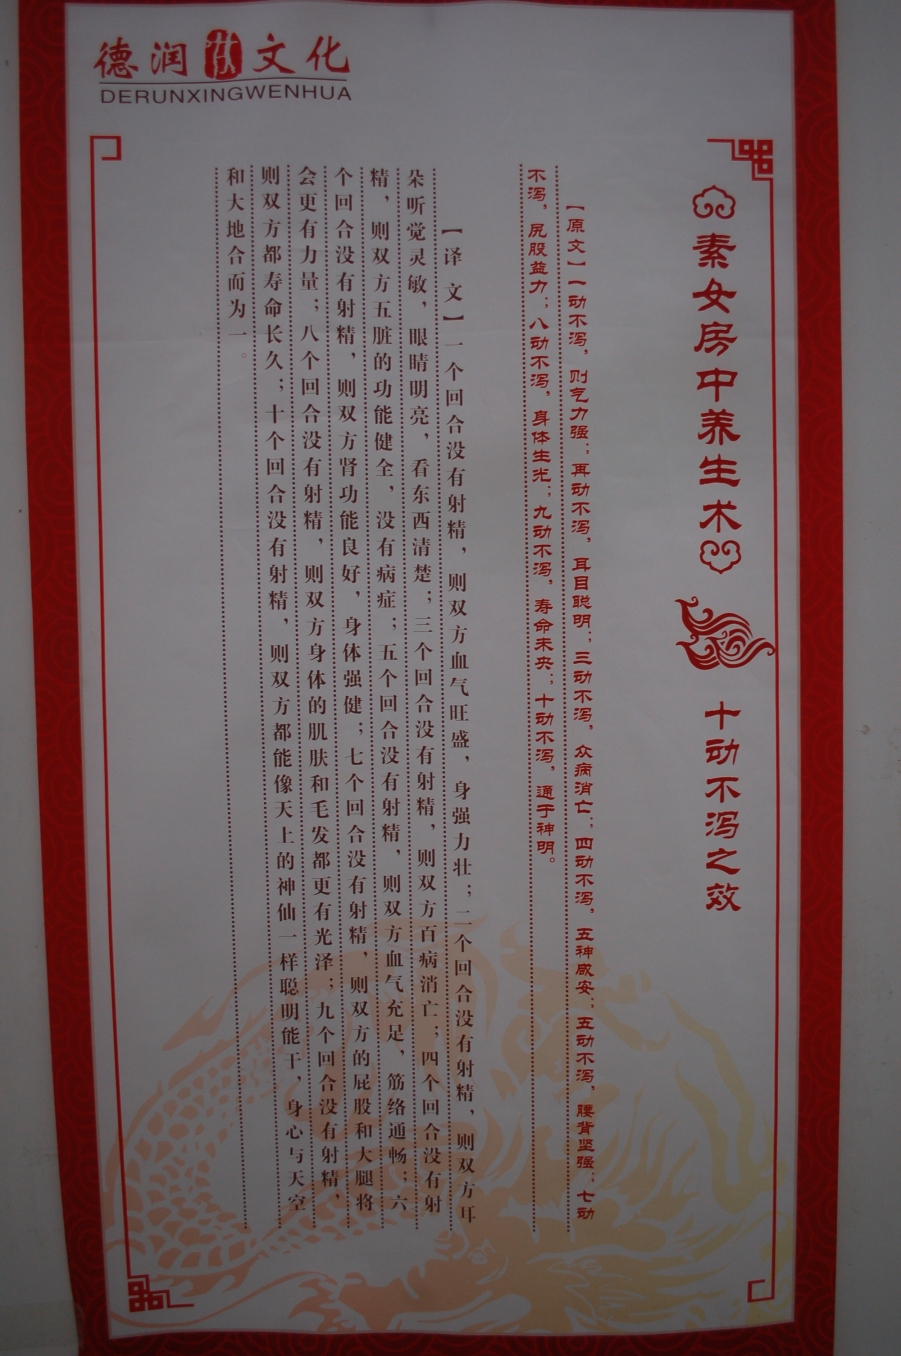 德润性文化
DERUNXINGWENHUA
素女房中养生术 十动不泻之效
【原文】一动不泻，则气力强；再动不泻，耳目聪明；三动不泻，众病消亡；四动不泻，五神咸安；五动不泻，腰背坚强；七动
不泻，尻股益力；八动不泻，身体生光；九动不泻，寿命未央；十动不泻，通于神明。
【译文】一个回合没有射精，则双方血气旺盛，身强力壮；二个回合没有射精，则双方耳
朵听觉灵敏，眼睛明亮，看东西清楚；三个回合没有射精，则双方百病消亡；四个回合没有射
精，则双方五脏的功能健全，没有病症；五个回合没有射精，则双方血气充足，筋络通畅；六
个回合没有射精，则双方肾功能良好，身体强健；七个回合没有射精，则双方的屁股和大腿将
会更有力量；八个回合没有射精，则双方身体的肌肤和毛发都更有光泽；九个回合没有射精，
则双方都寿命长久；十个回合没有射精，则双方都能像天上的神仙一样聪明能干，身心与天空
和大地合而为一。